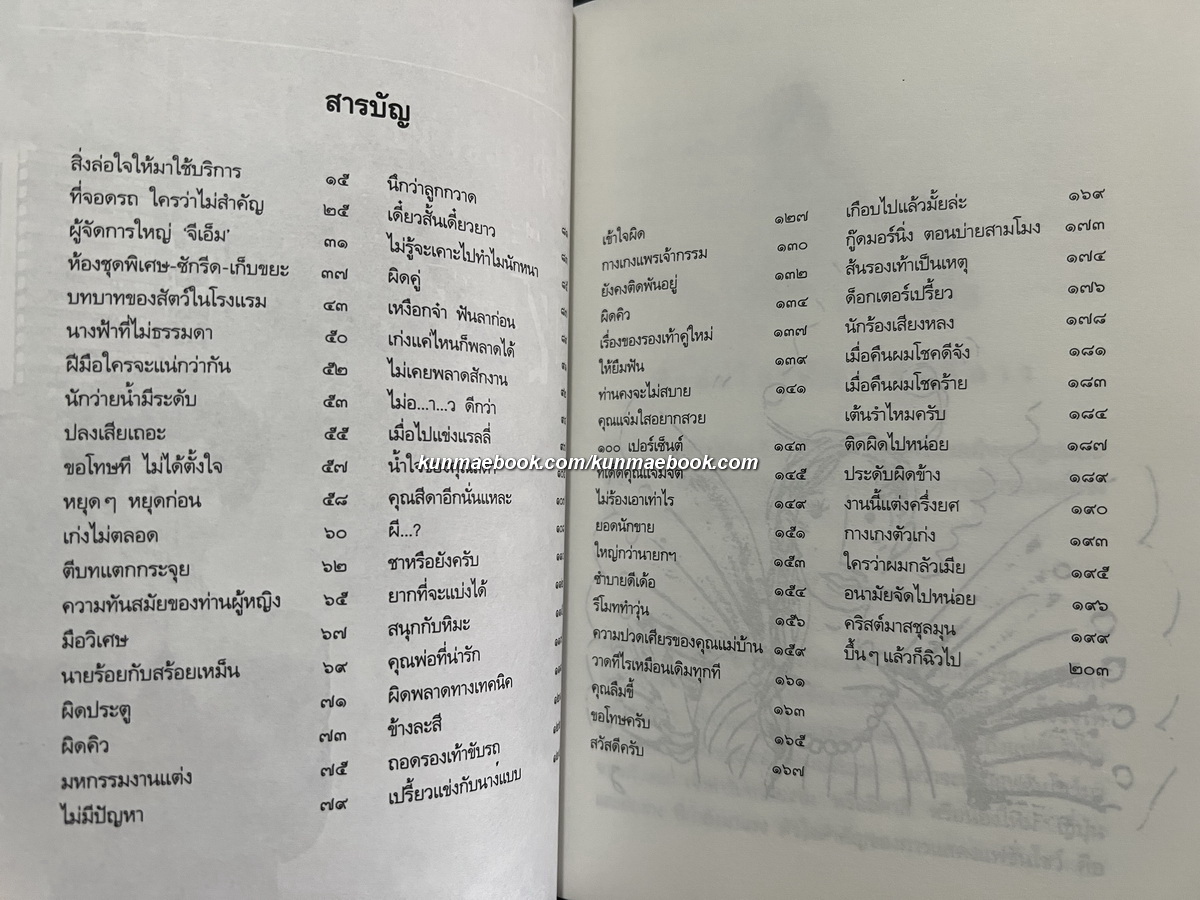 สารบัญ
สิ่งล่อใจให้มาใช้บริการ ๑๕
ที่จอดรถ ใครว่าไม่สำคัญ ๒๕
ผู้จัดการใหญ่ ‘จีเอ็ม’ ๓๑
ห้องชุดพิเศษ-ซักรีด-เก็บขยะ ๓๗
บทบาทของสัตว์ในโรงแรม ๔๓
นางฟ้าที่ไม่ธรรมดา ๕๐
ฝีมือใครจะแน่กว่ากัน ๕๒
นักว่ายน้ำมีระดับ ๕๓
ปลงเสียเถอะ ๕๕
ขอโทษที ไม่ได้ตั้งใจ ๕๗
หยุดๆ หยุดก่อน ๕๘
เก่งไม่ตลอด ๖๐
ตีบทแตกกระจุย ๖๒
ความทันสมัยของท่านผู้หญิง ๖๕
มือวิเศษ ๖๗
นายร้อยกับสร้อยเหม็น ๖๙
ผิดประตู ๗๑
ผิดคิว ๗๓
มหกรรมงานแต่ง ๗๕
ไม่มีปัญหา ๗๙
นึกว่าลูกกวาด
เดี๋ยวสั้นเดี๋ยวยาว
ไม่รู้จะเคาะไปทำไมนักหนา
ผิดคู่
เหงือกจ๋า ฟันลาก่อน
เก่งแค่ไหนก็พลาดได้
ไม่เคยพลาดสักงาน
ไม่อ...า...ว ดีกว่า
เมื่อไปแข่งแรลลี่
คุณสีดาอีกนั่นแหละ
ผี...?
ชาหรือยังครับ
ยากที่จะแบ่งได้
สนุกกับหิมะ
คุณพ่อที่น่ารัก
ผิดพลาดทางเทคนิค
ข้างละสี
ถอดรองเท้าขับรถ
เปรี้ยวแข่งกับนางแบบ
kunmaebook.com/kunmaebook.com
เข้าใจผิด ๑๒๗
กางเกงแพรเจ้ากรรม ๑๓๐
ยังคงติดพันอยู่ ๑๓๒
ผิดคิว ๑๓๔
เรื่องของรองเท้าคู่ใหม่ ๑๓๗
ให้ยืมฟัน ๑๓๙
ท่านคงจะไม่สบาย ๑๔๑
คุณแจ่มใสอยากสวย
๑๐๐ เปอร์เซ็นต์ ๑๔๓
ทีเด็ดคุณแจ่มจิต ๑๔๕
ไม่ร้องเอาเท่าไร ๑๔๙
ยอดนักขาย ๑๕๑
ใหญ่กว่านายกฯ ๑๕๓
ซำบายดีเด้อ ๑๕๔
รีโมททำวุ่น ๑๕๖
ความปวดเศียรของคุณแม่บ้าน ๑๕๙
วาดทีไรเหมือนเดิมทุกที ๑๖๑
คุณลืมขี้ ๑๖๓
ขอโทษครับ ๑๖๕
สวัสดีครับ ๑๖๗
เกือบไปแล้วมั้ยล่ะ ๑๖๙
กู๊ดมอร์นิ่ง ตอนบ่ายสามโมง ๑๗๓
ส้นรองเท้าเป็นเหตุ ๑๗๔
ด็อกเตอร์เปรี้ยว ๑๗๖
นักร้องเสียงหลง ๑๗๘
เมื่อคืนผมโชคดีจัง ๑๘๑
เมื่อคืนผมโชคร้าย ๑๘๓
เต้นรำไหมครับ ๑๘๔
ติดผิดไปหน่อย ๑๘๗
ประดับผิดข้าง ๑๘๙
งานนี้แต่งครึ่งยศ ๑๙๐
กางเกงตัวเก่ง ๑๙๓
ใครว่าผมกลัวเมีย ๑๙๕
อนามัยจัดไปหน่อย ๑๙๖
คริสต์มาสชุลมุน ๑๙๙
บึ้นๆ แล้วก็ฉิวไป ๒๐๓